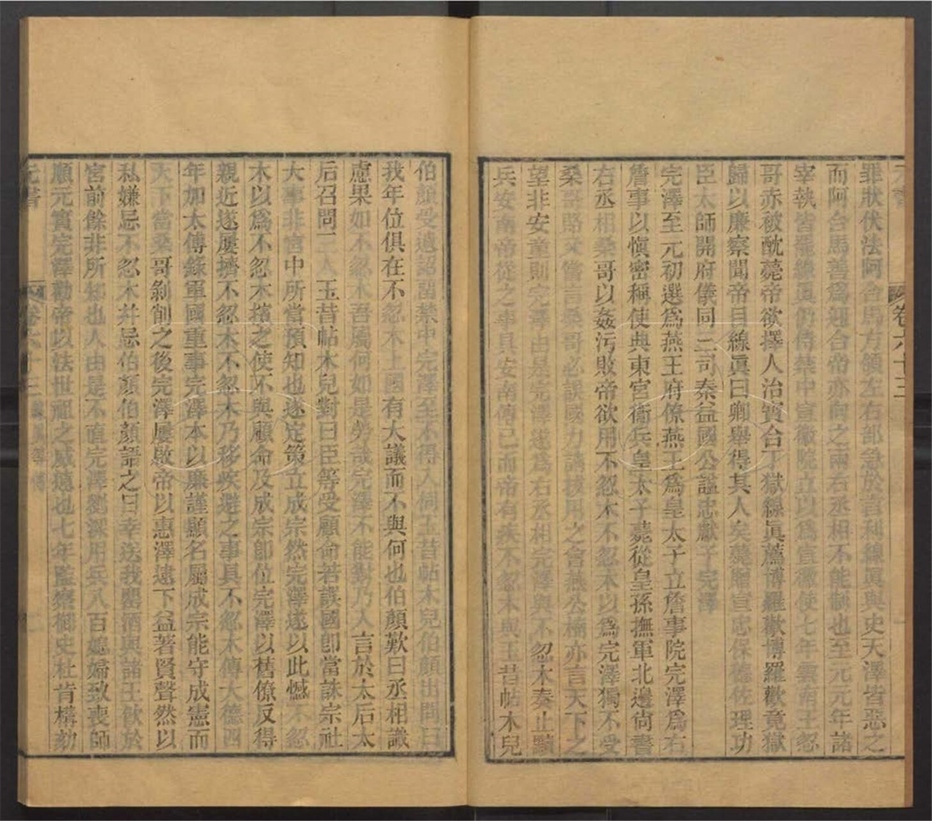 罪狀伏法阿合馬方領左右部急於言利線眞與史天澤皆惡之
而阿合馬善爲迎合帝亦向之兩右丞相不能制也至元元年諸
宰執皆罷線眞仍侍禁中宣徽院立以爲宣徽使七年雲南王忽
哥赤被酖薨帝欲擇人治寶合丁獄線眞薦博羅歡博羅歡竟獄
歸以廉察聞帝目線眞曰卿舉得其人矣薨贈宣忠保德佐理功
臣太師開府儀同三司秦益國公諡忠獻子完澤
完澤至元初選爲燕王府僚燕王爲皇太子立詹事院完澤爲右
詹事以愼密稱使典東宮衞兵皇太子薨從皇孫撫軍北邊尙書
右丞相桑哥以姦污敗帝欲用不忽木不忽木以爲完澤獨不受
桑哥賂又嘗言桑哥必誤國力請用之會燕公楠亦言天下之
望非安童則完澤由是完澤遂爲右丞相完澤與不忽木奏止
兵安南帝從之事具安南傳已而帝有疾不忽木與玉昔帖木兒
伯顏受遺詔留禁中完澤至不得入伺玉昔帖木兒伯顏出問曰
我年位俱在不忽木上國有大議而不與何也伯顏歎曰丞相識
慮果如不忽木吾屬何如是勞哉完澤不能對乃入言於太后太
后召問二人玉昔帖木兒對曰臣等受顧命若誤國卽當誅宗社
大事非宮中所當預知也遂定策立成宗然完澤遂以此憾不忽
木以爲不忽木擯之使不與顧命及成宗卽位完澤以舊僚反得
親近遂屢擠不忽木不忽木乃移疾避之事具不忽木傳大德四
年加太傅錄軍國重事完澤本以廉謹顯名屬成宗能守成憲而
天下當桑哥剝削之後完澤屢啟帝以惠澤逮下益著賢聲然以
私嫌忌不忽木幷忌伯顏伯顏語之曰幸送我罌酒與諸王飮於
宮前餘非所知也人由是不直完澤劉深用兵八百媳婦致喪師
順元實完澤勸帝以法世祖之威遠也七年監察御史杜肯構劾
元書
卷六十三